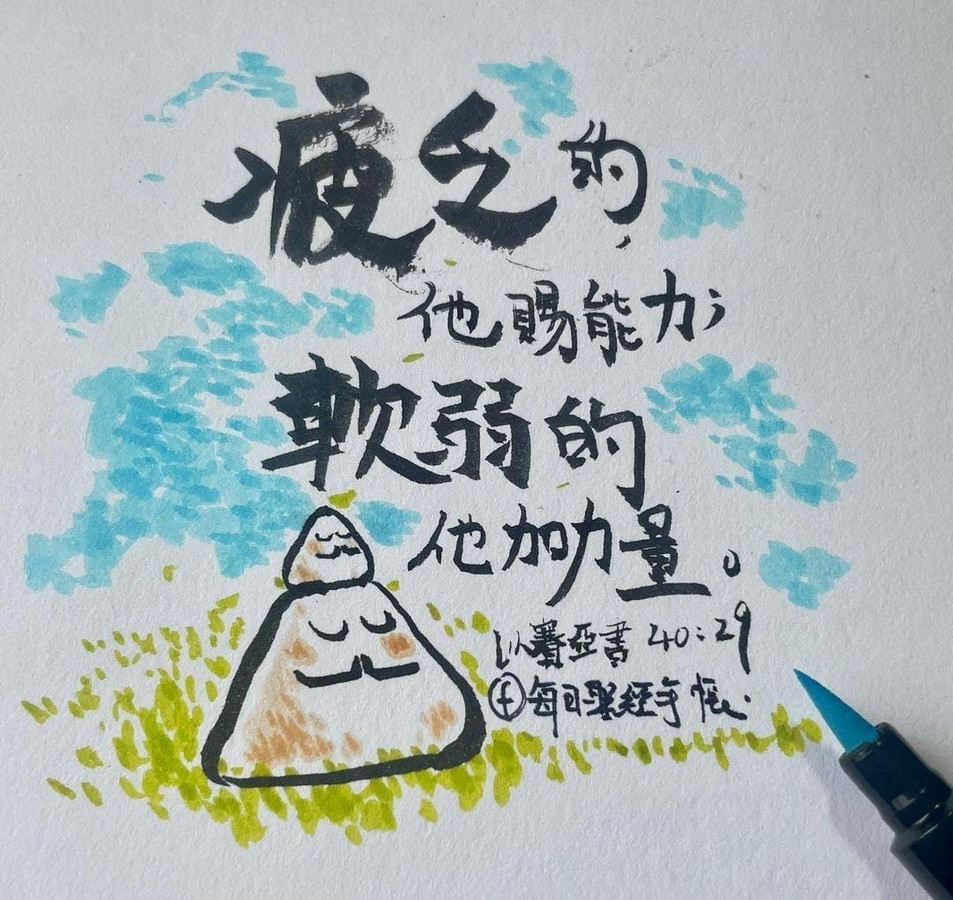 疲乏的，
他賜能力；
軟弱的
他加力量。
以賽亞書 40:29
ⓕ每日聖經手帳.